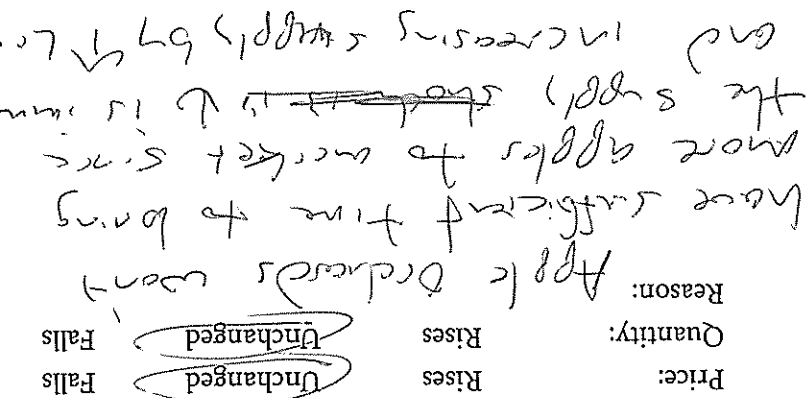 Price: Rises Unchanged Falls
Quantity: Rises Unchanged Falls
Reason: Apple Orchards won't
have sufficient time to bring
more apples to market since
the supply is imm
and increasing supply by 1